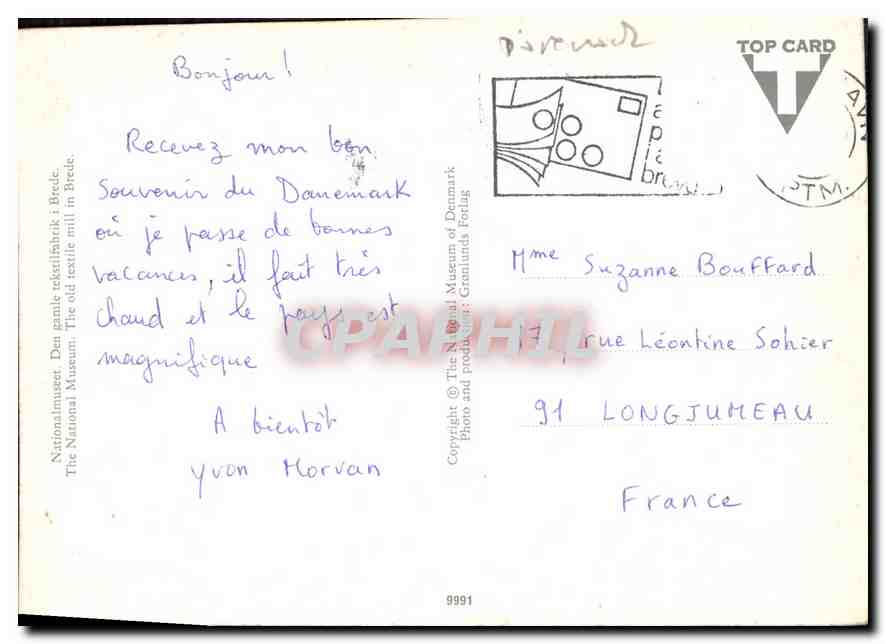 Bonjour !
Recevez mon bon
souvenir du Danemark
où je passe de bonnes
vacances, il fait très
chaud et le pays est
magnifique
A bientôt
Yvon Morvan
Nationalmuseet. Den gamle tekstilfabrik i Brede.
The National Museum: The old textile mill in Brede.
Copyright © The National Museum of Denmark
Photo and production: Grønlunds Forlag
TOP CARD
T
PTM.
Mme Suzanne Bouffard
17, rue Léontine Sohier
91 LONGJUMEAU
France
CPAPHIL
9991